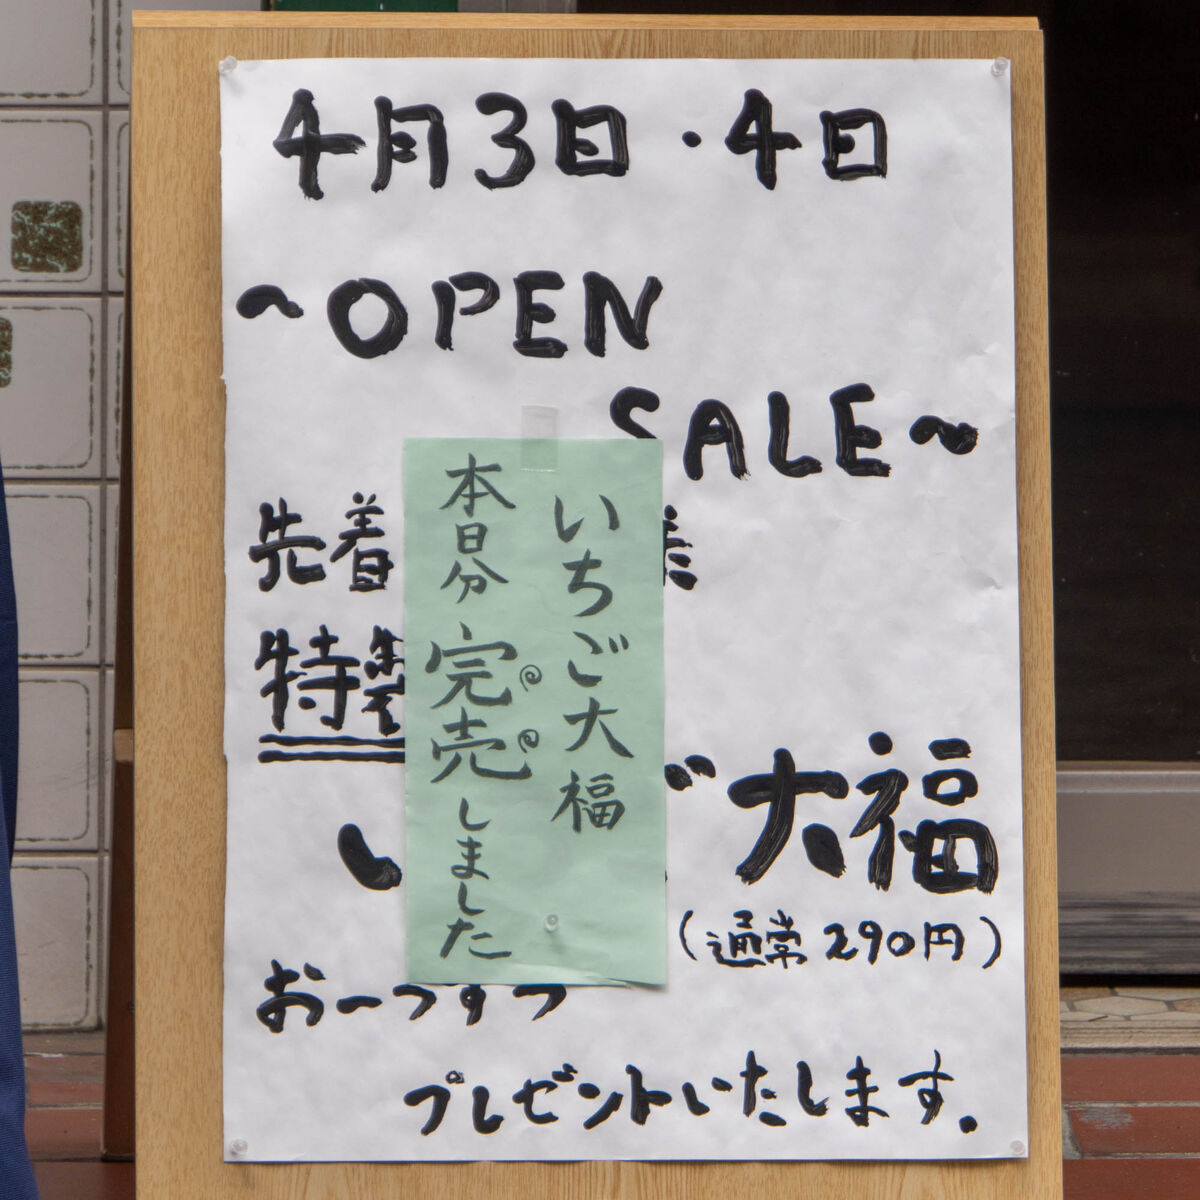 4月3日・4日
~OPEN
SALE~
先着
特製
大福
(通常290円)
お一つずつ
プレゼントいたします.
いちご大福
本日分完売しました